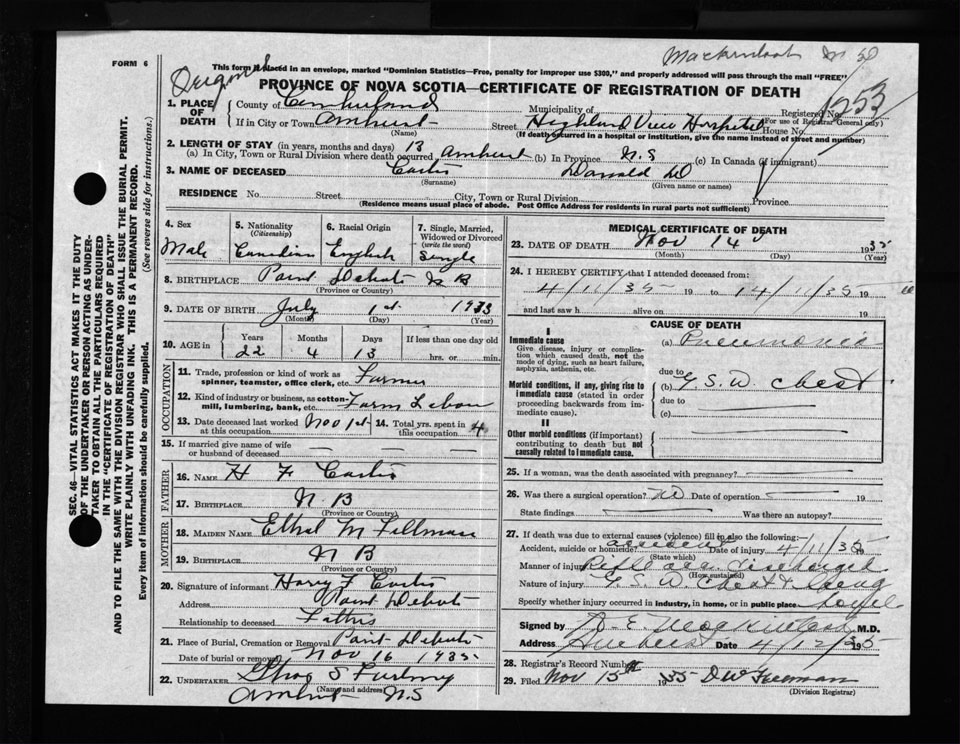 FORM 6
Original
Mackintosh
This form if placed in an envelope, marked "Dominion Statistics—Free, penalty for improper use $300," and properly addressed will pass through the mail "FREE"
PROVINCE OF NOVA SCOTIA—CERTIFICATE OF REGISTRATION OF DEATH
1253
1. PLACE OF DEATH
County of Cumberland Municipality of Registered No.
(For use of Registrar General only)
If in City or Town Amherst Street Highland View Hospital House No.
(Name) (If death occurred in a hospital or institution, give the name instead of street and number)
2. LENGTH OF STAY (in years, months and days) 13
(a) In City, Town or Rural Division where death occurred Amherst (b) In Province N.S (c) In Canada (if immigrant)
3. NAME OF DECEASED Donald
(Surname) (Given name or names)
RESIDENCE No. Street City, Town or Rural Division Province
(Residence means usual place of abode. Post Office Address for residents in rural parts not sufficient)
4. Sex Male
5. Nationality (Citizenship) Canadian
6. Racial Origin English
7. Single, Married, Widowed or Divorced (write the word) Single
8. BIRTHPLACE Point Debute N B
(Province or Country)
9. DATE OF BIRTH July 1st
(Month) (Day) (Year)
10. AGE in Years Months Days If less than one day old
22 4 13 hrs. or min.
OCCUPATION
11. Trade, profession or kind of work as spinner, teamster, office clerk, etc. Farmer
12. Kind of industry or business, as cotton-mill, lumbering, bank, etc. Farm Labour
13. Date deceased last worked at this occupation Nov 1st 14. Total yrs. spent in this occupation 4
15. If married give name of wife or husband of deceased
FATHER
16. Name H F
17. Birthplace N B
(Province or Country)
MOTHER
18. Maiden Name Ethel M
19. Birthplace N B
(Province or Country)
20. Signature of informant Harry F
Address Point Debute
Relationship to deceased Father
21. Place of Burial, Cremation or Removal Point Debute
Date of burial or removal Nov 16 1935
22. UNDERTAKER
(Name and address)
Amherst N.S
MEDICAL CERTIFICATE OF DEATH
23. DATE OF DEATH Nov 14 1935
(Month) (Day) (Year)
24. I HEREBY CERTIFY that I attended deceased from:
4/11/35 19 to 14/11/35 19
and last saw h alive on 19
CAUSE OF DEATH
I
Immediate cause
Give disease, injury or complication which caused death, not the mode of dying, such as heart failure, asphyxia, asthenia, etc.
(a) Pneumonia
due to
Morbid conditions, if any, giving rise to immediate cause (stated in order proceeding backwards from immediate cause).
(b) G.S.W. Chest
due to
(c)
II
Other morbid conditions (if important) contributing to death but not causally related to immediate cause.
25. If a woman, was the death associated with pregnancy?
26. Was there a surgical operation? Date of operation 19
State findings Was there an autopsy?
27. If death was due to external causes (violence) fill in also the following:—
Accident, suicide or homicide? accident Date of injury 4/11/35
(State which)
Manner of injury Rifle discharged
(How sustained)
Nature of injury G.S.W. Chest & Lung
Specify whether injury occurred in industry, in home, or in public place
Signed by Mackintosh M.D.
Address Amherst Date 4/12/35
28. Registrar's Record Number
29. Filed Nov 15th 1935 D W Freeman
(Division Registrar)
SEC. 46—VITAL STATISTICS ACT MAKES IT THE DUTY
OF THE UNDERTAKER OR PERSON ACTING AS UNDER-
TAKER TO OBTAIN ALL THE PARTICULARS REQUIRED
IN THE "CERTIFICATE OF REGISTRATION OF DEATH"
AND TO FILE THE SAME WITH THE DIVISION REGISTRAR WHO SHALL ISSUE THE BURIAL PERMIT.
WRITE PLAINLY WITH UNFADING INK. THIS IS A PERMANENT RECORD.
Every item of information should be carefully supplied. (See reverse side for instructions.)